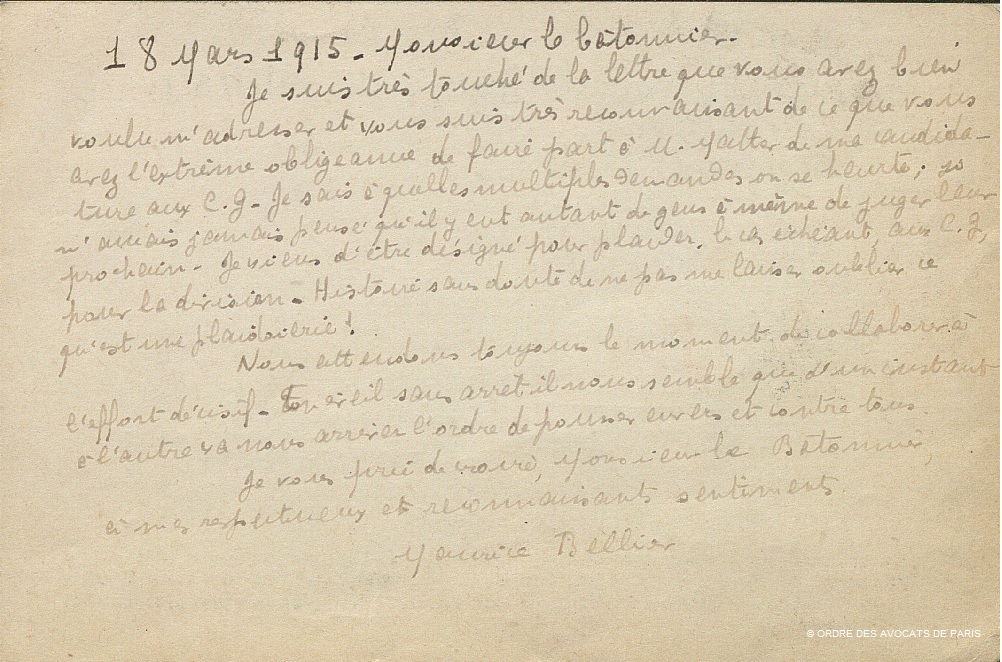 18 Mars 1915 - Monsieur le bâtonnier -
Je suis très touché de la lettre que vous avez bien
voulu m'adresser et vous suis très reconnaissant de ce que vous
avez l'extrême obligeance de faire part à M. Matter de ma candida-
ture aux C. G - Je sais à quelles multiples demandes on se heurte ; je
n'aurais jamais pensé qu'il y eut autant de gens à même de juger leur
prochain - Je viens d'être désigné pour plaider, le cas échéant, aux C. G,
pour la division - Histoire sans doute de ne pas me laisser oublier ce
qu'est une plaidoierie !
Nous attendons toujours le moment de collaborer à
l'effort décisif - en éveil sans arrêt il nous semble que d'un instant
à l'autre va nous arriver l'ordre de pousser envers et contre tous
Je vous prie de croire, Monsieur le Bâtonnier,
à mes respectueux et reconnaissants sentiments
Maurice Bellier
© ORDRE DES AVOCATS DE PARIS